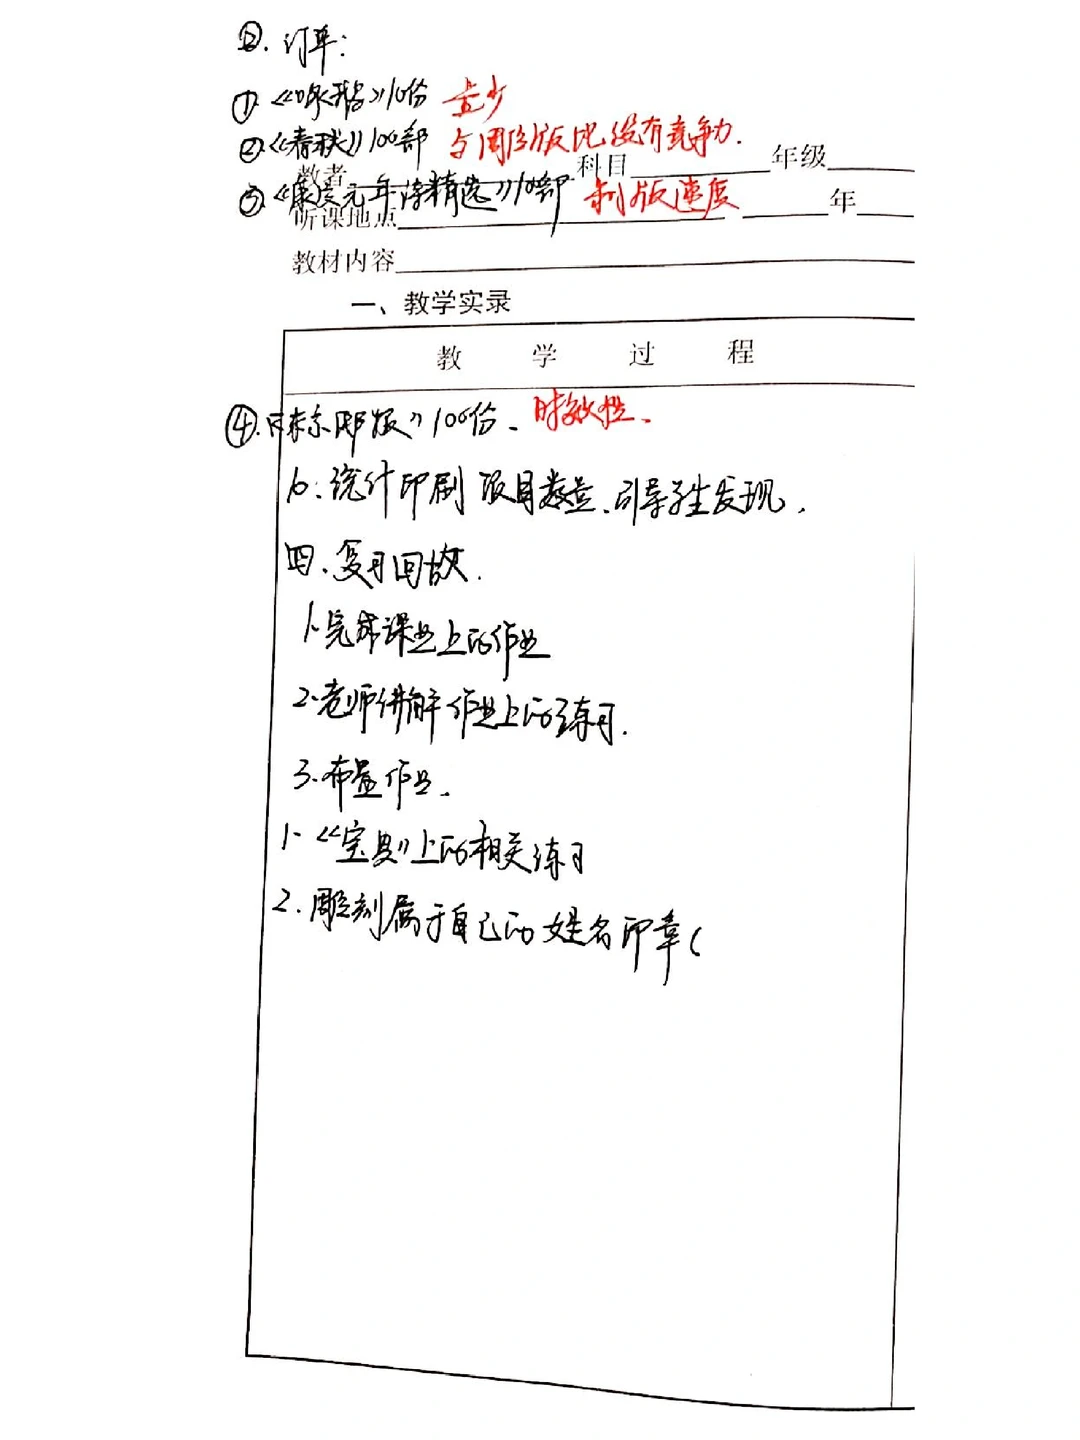 ②. 订单:
①《咏鹅》10份 量少
②《春秋》100部 与周边版比没有竞争力.
教者 科目 年级
③《康定元年诗精选》10部 制版速度
听课地点 年
教材内容
一、教学实录
教 学 过 程
④. 100份、时效性、
6. 统计印刷项目数量、引导学生发现,
四、复习回故.
1.完成课业上的作业
2.老师讲解作业上的练习.
3.布置作业.
1.《宝典》上的相关练习
2.雕刻属于自己的姓名印章(